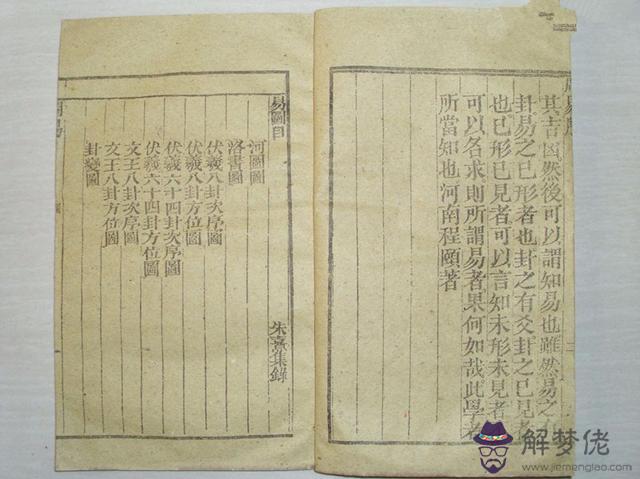 周易序
其吉凶然後可以謂知易也雖然易之
卦易之已形者也卦之有爻卦之已見者
也已形已見者可以言知未形未見者
可以名求則所謂易者果何如哉此學者
所當知也河南程頤著
易圖目
朱熹集錄
河圖圖
洛書圖
伏羲八卦次序圖
伏羲八卦方位圖
伏羲六十四卦次序圖
伏羲六十四卦方位圖
文王八卦次序圖
文王八卦方位圖
卦變圖
解梦佬
www.jiemenglao.com